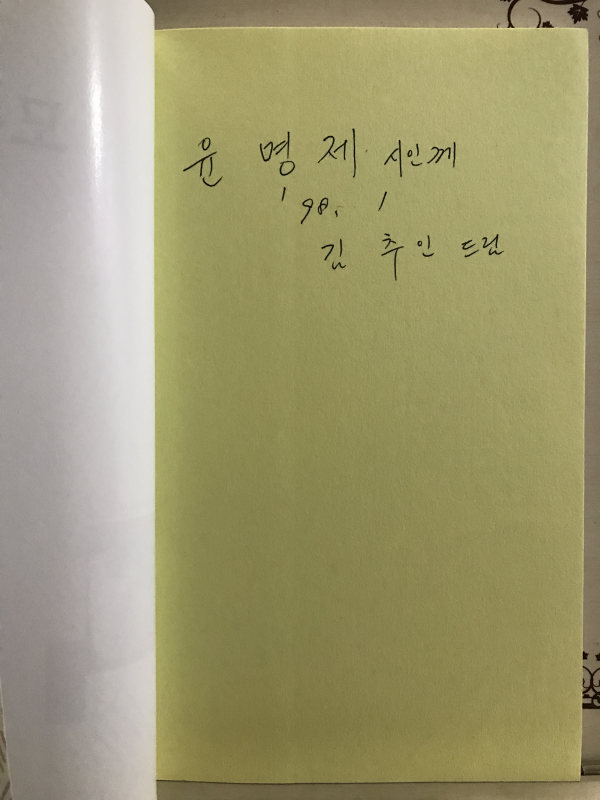 윤 명 제 시인께
'98. 1
김 추인 드림